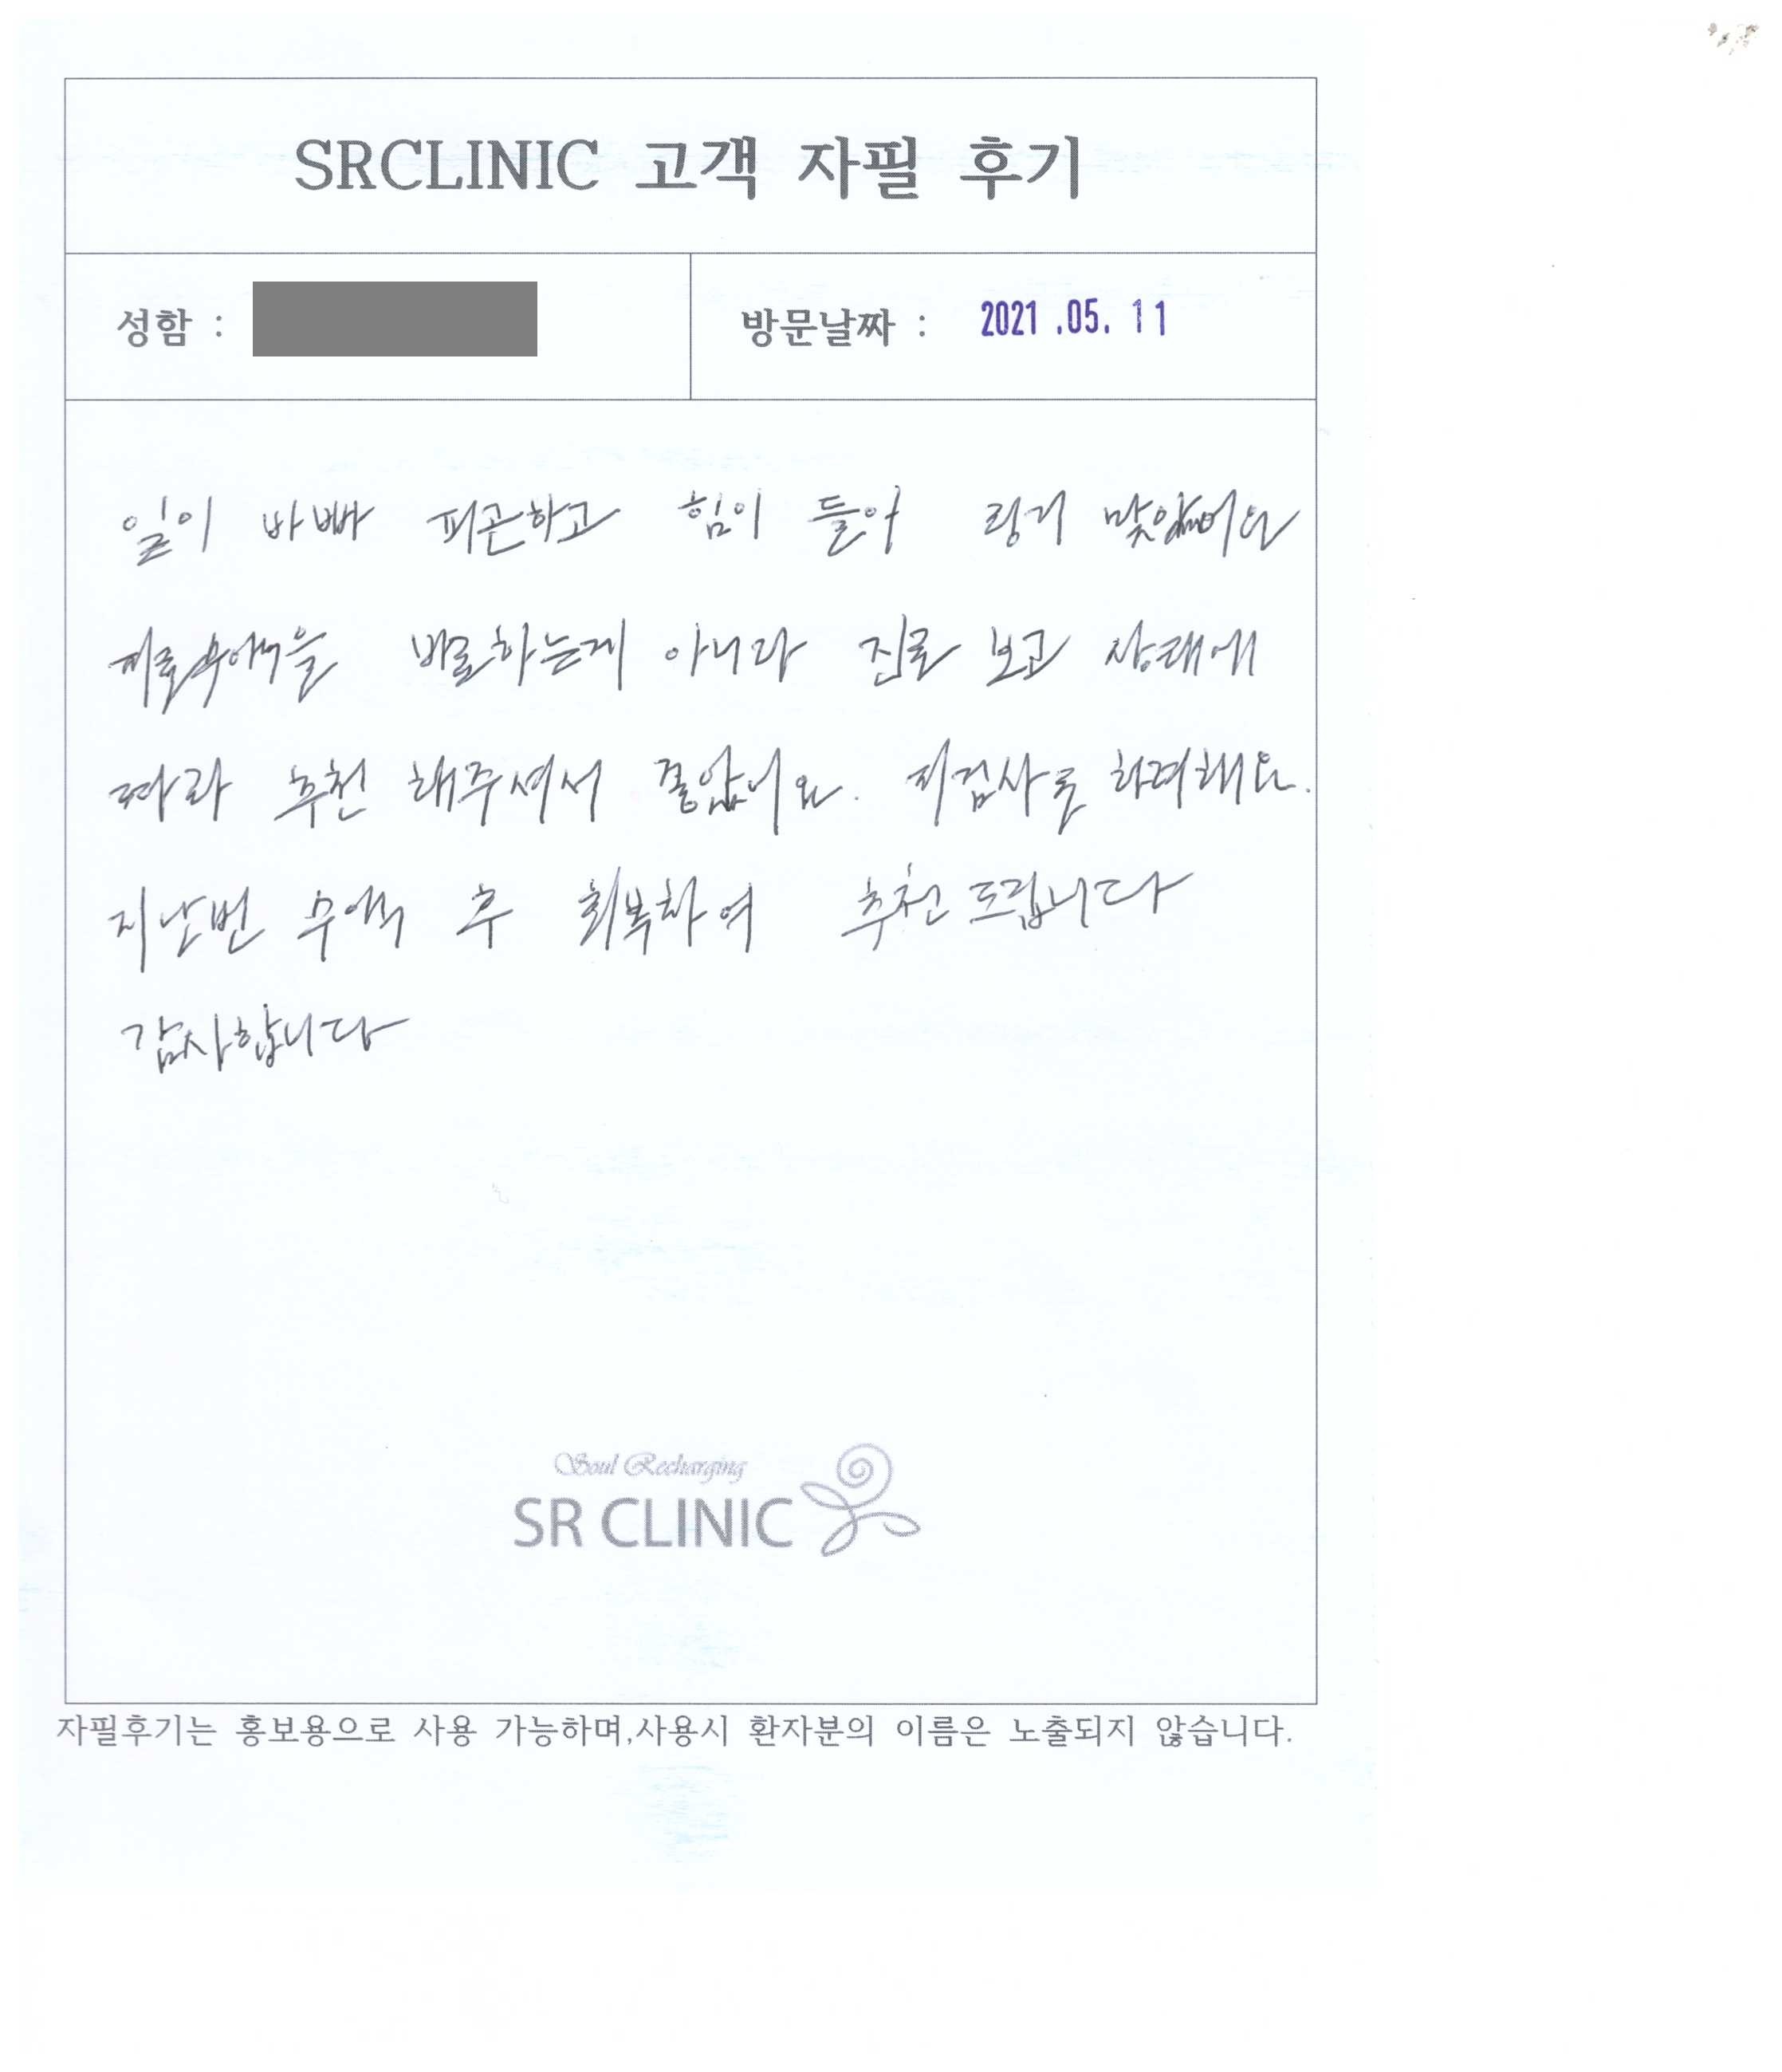 SRCLINIC 고객 자필 후기
성함 :
방문날짜 : 2021 .05. 11
일이 바빠 피곤하고 힘이 들어 링거 맞았어요
피로수액을 바로하는게 아니라 진료 보고 상태에
따라 추천 해주셔서 좋았어요. 피검사도 하려해요.
지난번 수액 후 회복하여 추천드립니다
감사합니다
Soul Recharging
SR CLINIC
자필후기는 홍보용으로 사용 가능하며,사용시 환자분의 이름은 노출되지 않습니다.